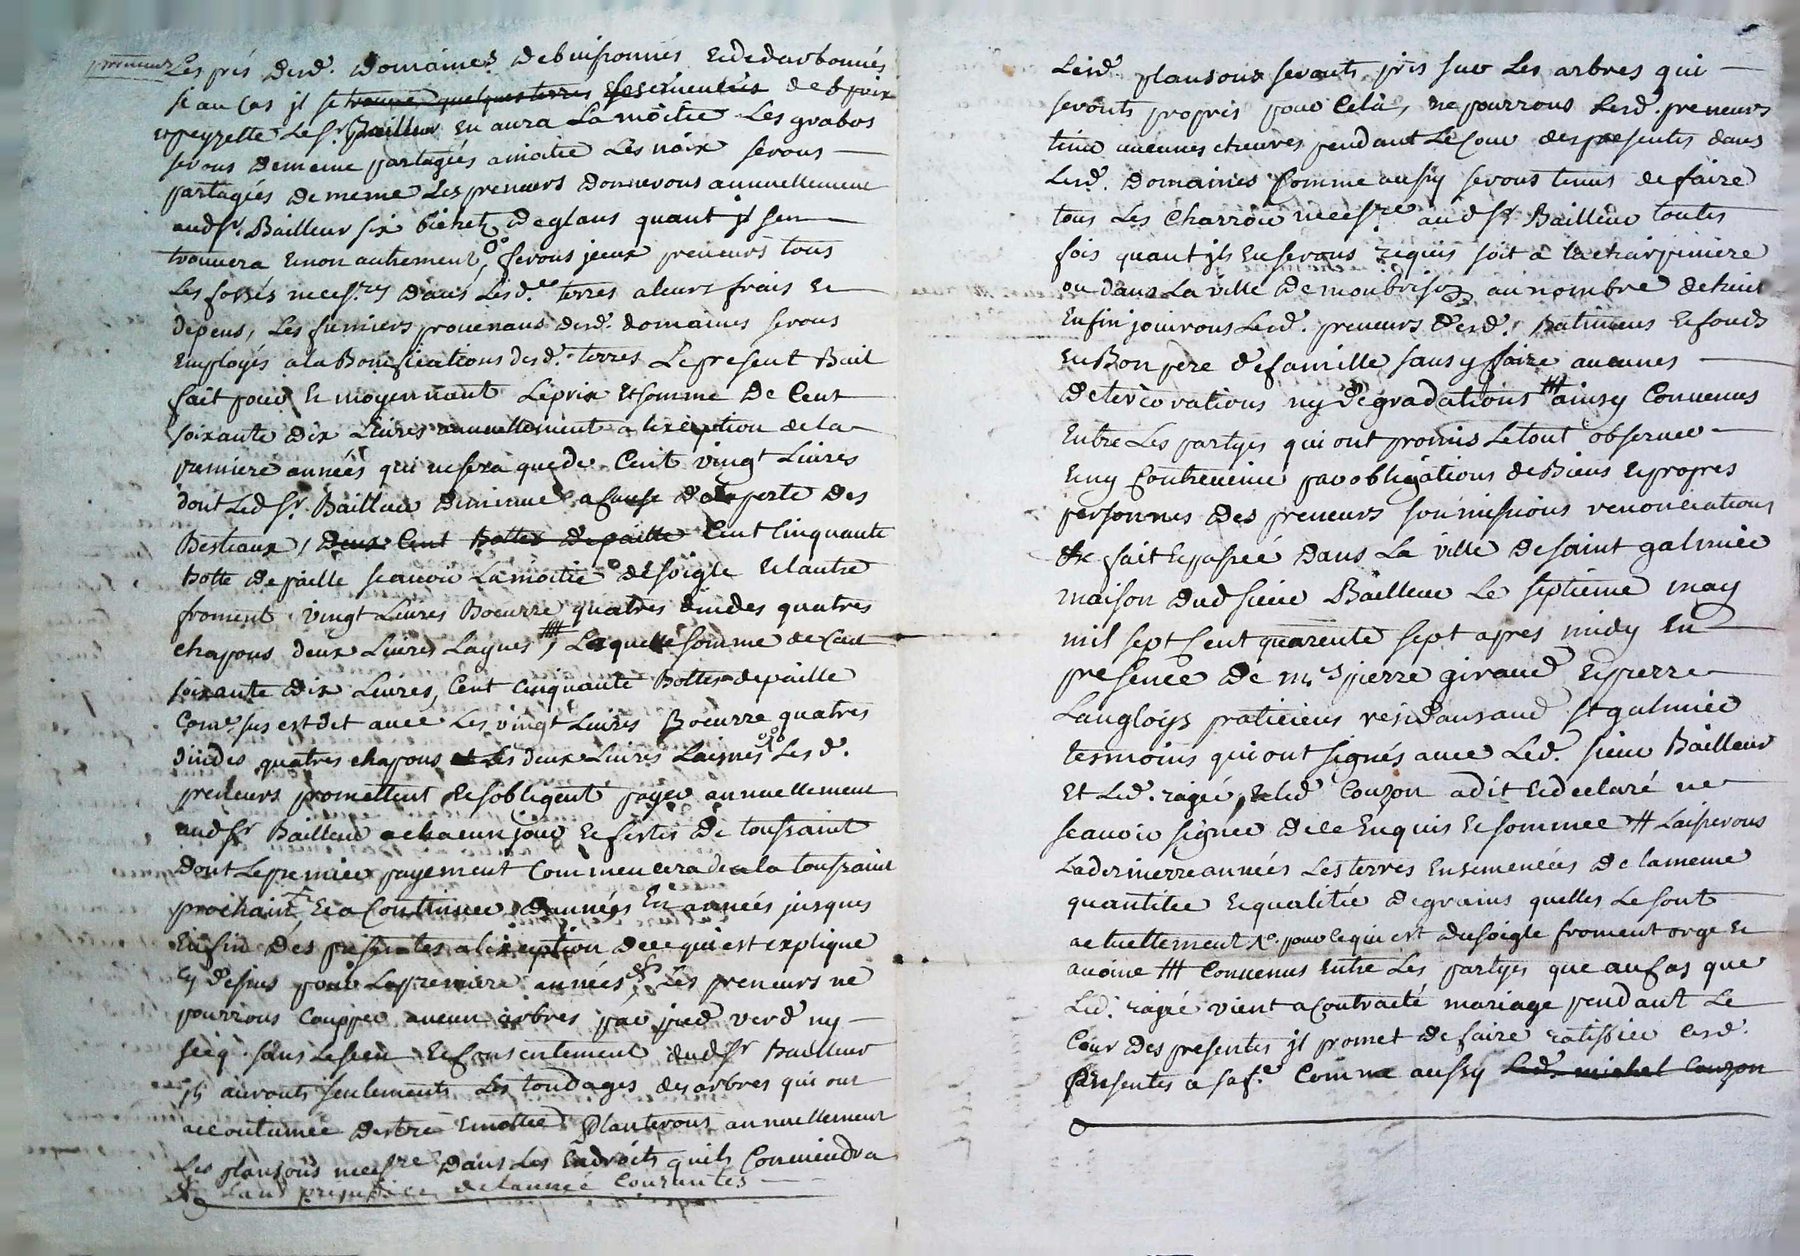 Les prés desd. domaines debuissonnés et de darbonnés
se au cas jl se trouve quelques terres ensemencées de pois
et pezette le sr. Bailleur en aura La moitié Les grabos
serons de meme partagés a moitié Les noix serons
partagées de meme Les preneurs donnerons annuellement
audsr. Bailleur six bichets de glans quant jl sen
trouvera et non autrement, ferons jceux preneurs tous
Les fossés necessres dans lesd. terres a leurs frais et
depens, Les fumiers provenans desd. domaines serons
employés a la Bonifications desd. terres Le present Bail
fait pour et moyennant Leprix et somme De Cent
soixante dix Livres annuellement a lexeption de la
premiere années qui ne sera que de Cent vingt Livres
dont Led sr. Bailleur diminue a cause de la perte des
Bestiaux, deux Cent bottes de paille Cent Cinquante
botte de paille scavoir La moitié de soigle et lautre
froment vingt Livres Boeurre quatres dindes quatres
chapons deux Livres Laynes, Laquelle somme de Cent
soixante dix Livres, Cent cinquante Bottes de paille
Come sus est dit avec Les vingt Livres Boeurre quatres
dindes quatres chapons et Les deux Livres Laines Lesd.
preneurs promettent et sobligent payer annuellement
audsr Bailleur a chacun jour et festes de toussaint
dont Le premier payement Commencera de a la toussaint
prochaint et a Continuer dannées En années jusques
Enfin des presentes a lexeption de ce qui est expliqué
cy dessus pour La premiere années Les preneurs ne
pourrons Coupper aucun arbres par pied verd ny
secq sans Le sceu et Consentement dudsr Bailleur
jls aurons seulements Les tondages des arbres qui ont
accoutumée destre emottée Planterons annuellement
Les plansons necessre dans Les Endroits quils Conviendra
de lannée Courantes
Lesd. plansons serants pris sur Les arbres qui
seronts propres pour Cela, ne pourrons Lesd. preneurs
tenir aucunes chevres pendant Le Cour des presentes dans
Lesd. domaines Comme aussy serons tenus de faire
tous Les Charrois necessre audsr Bailleur toutes
fois quant jls en serons requis soit a la charpiniere
ou dans La ville de monbrison au nombre de huit
Enfin jouirons Lesd. preneurs desd. Batimens et fonds
en Bon pere de famille sans y faire aucunes
deteriorations ny degradations ainsy Convenus
Entre Les partyes qui ont promis Le tout observer
et ny Contrevenir par obligations de Biens et propres
personnes des preneurs soumissions renonciations
&c fait et passée Dans La ville De saint galmier
maison dud sieur Bailleur Le septieme may
mil sept Cent quarente sept apres midy En
presence De mrs pierre giraud et pierre
Langloys praticiens residans aud St galmier
temoins qui ont signés avec Led. sieur Bailleur
Et Led. ragé, et led Couzon a dit et declaré ne
scavoir signer de ce Enquis et sommee # Laisserons
La dernierre années Les terres Ensemencées de la meme
quantitée et qualitée de grains quelles Le sont
actuellement &c. pour ce qui est du soigle froment orge et
avoine ### Convenus Entre Les partyes que au Cas que
Led. ragé vient a Contracté mariage pendant Le
Cour des presentes jl promet de faire ratiffier Cesd.
presentes a sa fe. Comme aussy Led. michel Couzon